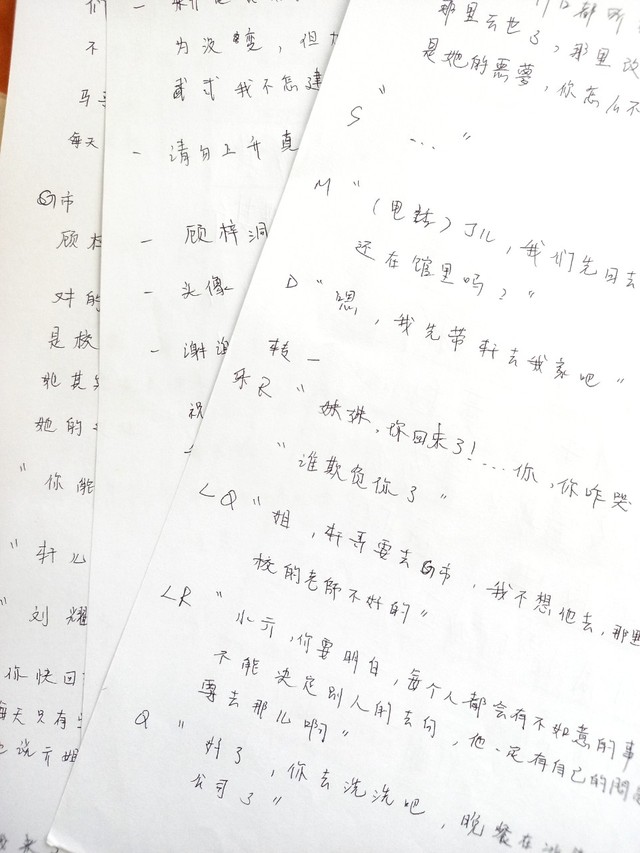 们
不
马
每天
G市
顾梓
对的
是校
她其实
她的
"你能
"轩儿
"刘耀
你快回
每天只有
也说亓姐
－
为没变，但
武寸我不怎建
－请勿上升真
－顾梓洞
－头像
－谢谢
祝
那里去世了，那里改
是她的恶梦，你怎么不
S"
..."
M"（电话）JL，我们先回去
还在馆里吗？"
D"嗯，我先带轩去我家吧"
转－
R"妹妹，你回来了！...你，你咋哭
"谁欺负你了"
LQ"姐，轩哥要去G市，我不想他去，那里
校的老师不好的"
LR"小亓，你要明白，每个人都会有不如意的事
不能决定别人的去向，他一定有自己的
要去那儿啊"
Q"好了，你去洗洗吧，晚餐在
公司了"